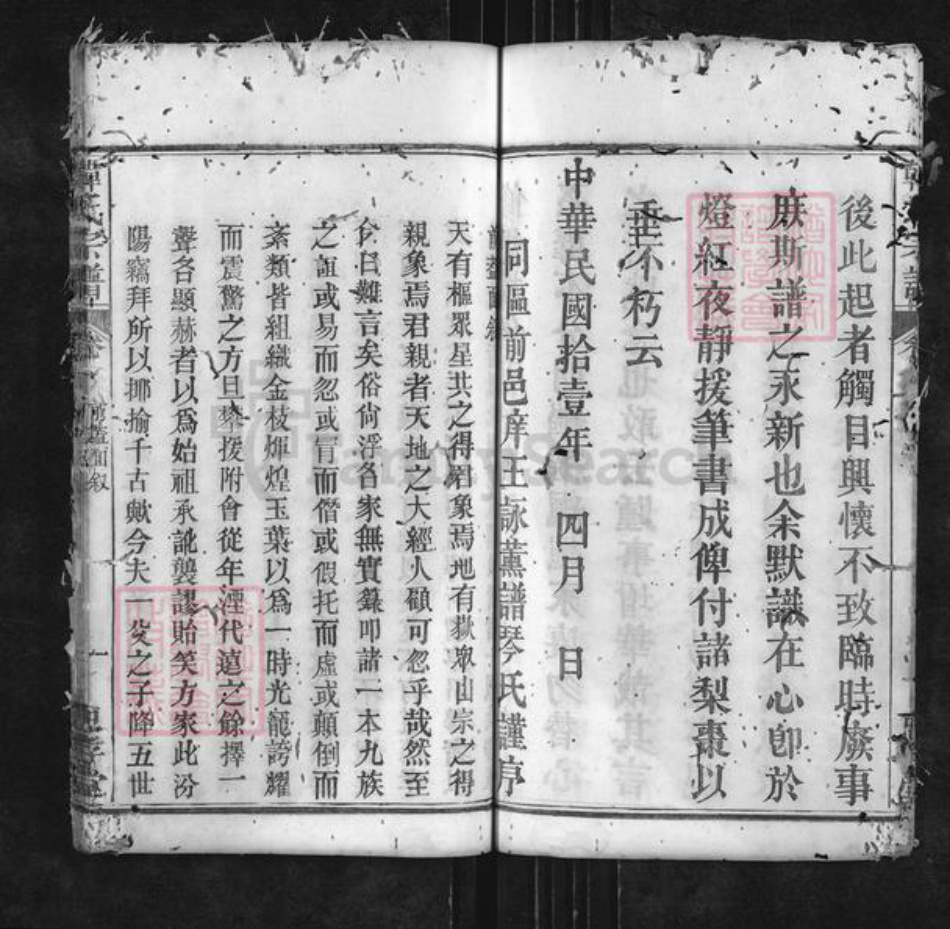 後此起者觸目興懷不致臨時廢事
庶斯譜之永新也余默識在心卽於
燈紅夜靜援筆書成俾付諸梨棗以
垂不朽云
中華民國拾壹年 四月 日
同區前邑庠王詠薰譜琴氏謹序
天有樞眾星共之得君象焉地有嶽眾山宗之得
親象焉君親者天地之大經人顧可忽乎哉然至
今日難言矣俗尙浮各家無實錄叩諸一本九族
之誼或易而忽或冒而僭或假托而虛或顛倒而
紊類皆組織金枝煇煌玉葉以爲一時光龍誇耀
而震驚之方且攀援附會從年湮代遠之餘擇一
聲各顯赫者以爲始祖承訛襲謬貽笑方家此汾
陽竊拜所以揶揄千古歟今夫一父之子降五世
FamilySearch